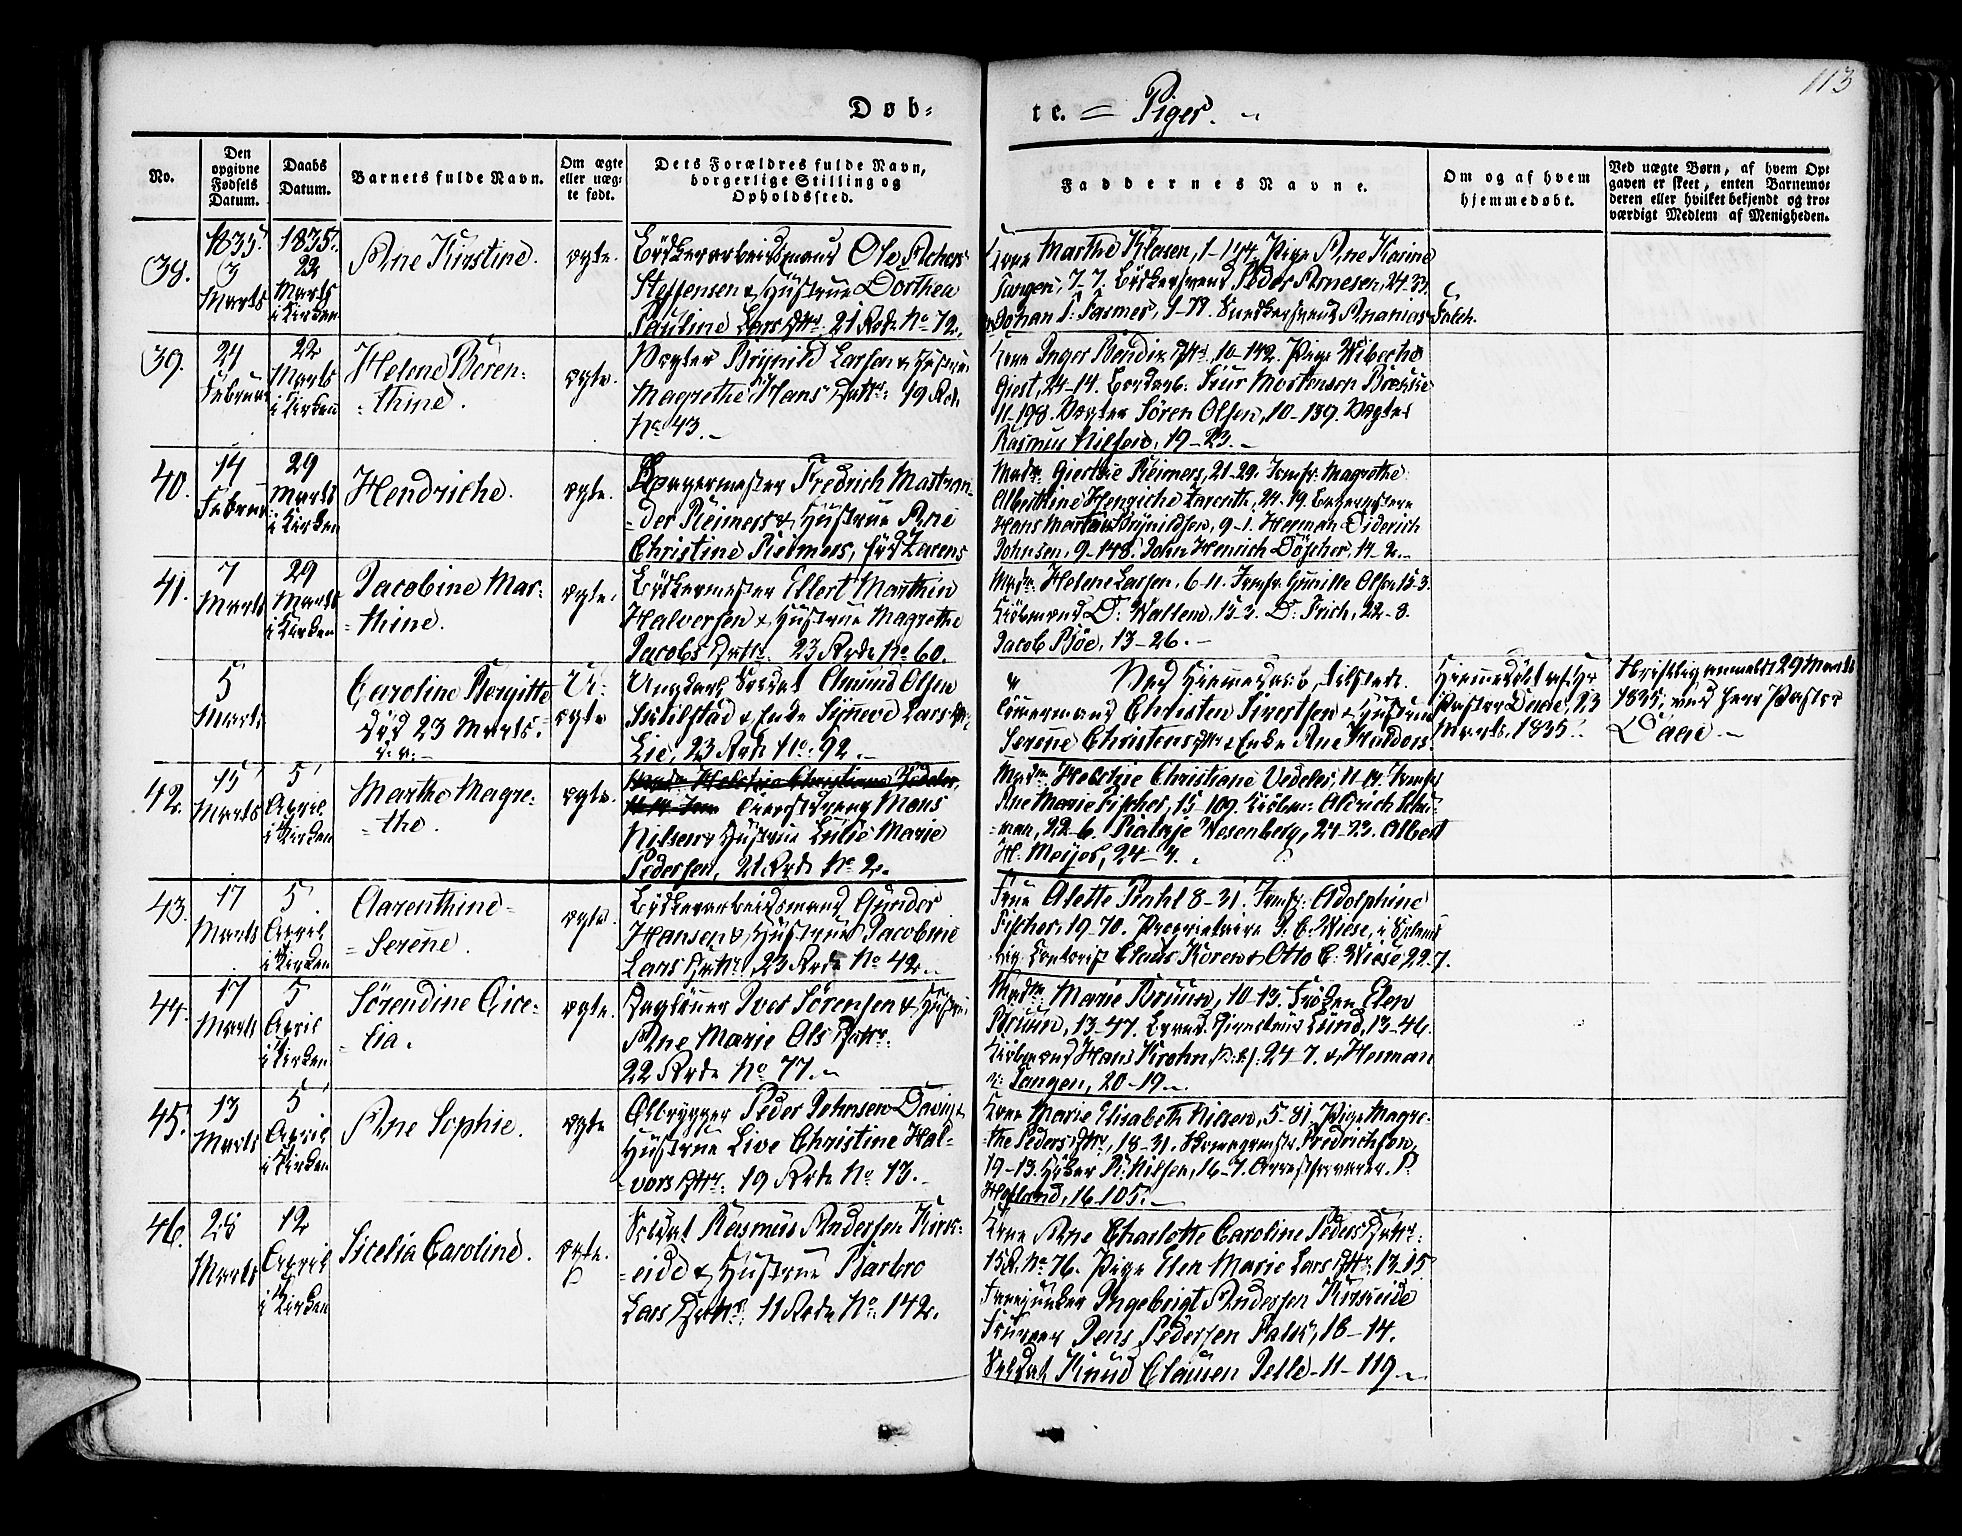 113
Døb-
te. = Piger. ~
No.
Den opgivne Fødsels Datum.
Daabs Datum.
Barnets fulde Navn.
Om ægte eller uægte født.
Dets Forældres fulde Navn, borgerlige Stilling og Opholdssted.
Faddernes Navne.
Om og af hvem hjemmedøbt.
Ved uægte Børn, af hvem Opgaven er skeet, enten Barnemoderen eller hvilket bekjendt og troværdigt Medlem af Menigheden.
38.
1835.
3
Marts
1835.
22
Marts
i Kirken
Ane Kirstine.
ægte.
Bødkerarbeidsmand Ole
Steffensen & Hustrue Dorthea
Pauline Lars Dttr. 21 Rode No 72.
Kone Marthe Klosen, 1-144. Pige Ane Karine
Tangen, 7-7. Bødkersvend Peder Arnesen, 24-33
Johan T. Farmer, 9-79. Snedkersvend Ananias Falch.
39.
24
Februar
22
Marts
i Kirken
Helene Beren-
=thine.
ægte.
Vægter Brynild Larsen & Hustrue
Magrethe Hans Dattr: 19 Rode
No 43.-
Kone Inger Bendix Dtr. 10-142. Pige Wibecke
Giest, 24-14.
11-198. Vægter Sören Olsen, 10-139. Vægter
Rasmus Nilsen, 19-23.-
40.
14
Februar
29
Marts
i Kirken
Hendriche.
ægte.
Borgermester Fredrich
=der Reimers & Hustrue Ane
Christine Reimers, född Larens
Madm: Giertrue Reimers, 21-29. Jomfr: Magrethe
Hans Martin Brynildsen, 9-1. Herman Diderich
Johnsen, 9-148. John Henrich Döscher, 14-2.-
41.
7
Marts
29
Marts
i Kirken
Jacobine Mar-
=thine.
ægte.
Bødkermester Ellert Marthin
Halvorsen & Hustrue Magrethe
Jacobs Dattr. 23 Rode No 60.
Madm: Helene Larsen, 6-11. Jomfr: Gunille Olsen 15-3.
Kiöbmand D: Wallem, 15-3. D: Frich, 22-8.
Jacob Böe, 13-26.-
5
Marts
Caroline Bergitte
död 23 Marts.
U-
ægte
Ungkarl Soldat Amund Olsen
& Enke Synneve Lars Dtr
Lie, 23 Rode No 92.-
Ved Hiemmedaab,
Tömmermand Christen Sivertsen & Hustrue
Serene Christens Dtr & Enke Ane Haldors
Hiemmedöbt af Hr
Pastor Daae, 23
Marts, 1835.
Skriftlig anmeldt 29 Marts
1835, ved Herr Pastor
Daae -
42.
15
Marts
5
April
i Kirken
Marthe Magre-
=the.
ægte.
Mons
Nilsen & Hustrue Lulie Marie
Pedersen, 21 Rode No 2.
Madm: Christiane Vedeler, 11-14. Jomfr
Ane Marie Fischer, 15-109. Kiöbm: Aldrich Schu-
=man, 22-6. Wesenberg, 24-23. Albert
H: Meÿer, 24-4.
43.
17
Marts
5
April
i Kirken
Clarenthine
=Serene.
ægte.
Bødkerarbeidsmand Gunder
Hansen & Hustrue Jacobine
Lars Dattr. 23 Rode No 42.
Frue Alette 8-31. Jomfr: Adolphine
Fischer, 19-70. Proprietaire J. C. Wiese, i
Contorist Claus Koren & Otto C: Wiese, 22-7.
44.
17
Marts
5
April
i Kirken
Sörendine Cice-
=lia.
ægte.
Dagleiner Iver Sörensen & Hustrue
Ane Marie Ols Dattr.
22 Rode No 77.-
Madm: Marie Bruun, 10-13. Fröken Elen
Bruun, 13-47. Lund, 13-46.
Kiöbmand Hans Krohn, 24-7. & Herman
v: Tangen, 20-19.-
45.
13
Marts
5
April
i Kirken
Ane Sophie.
ægte
Ölbrygger Peder Johnsen &
Hustrue Live Christine Hal-
=vors Dttr. 19 Rode No 13.-
Kone Marie Elisabeth Nilsen, 5-81. Pige Magre-
=the Peders Dtr, 18-31. Fredrichsen,
19-13. Höker R: Nilsen, 16-7. Arrestforvarer P.
Hofland, 16-105.-
46.
28
Marts
12
April
i Kirken
Sicelia Caroline.
ægte.
Soldat Rasmus Andersen Kirk-
=eide & Hustrue Barbro
Lars Dattr. 11 Rode No 142.
Kone Ane Charlotte Caroline Peders Dattr:
15 R. No 76. Pige Elen Marie Lars Dttr: 13-15.
Ingebrigt Andersen Kirkeide
Jens Pedersen Falk, 18-14.
Soldat Knud Clausen Pelle 11-119.-